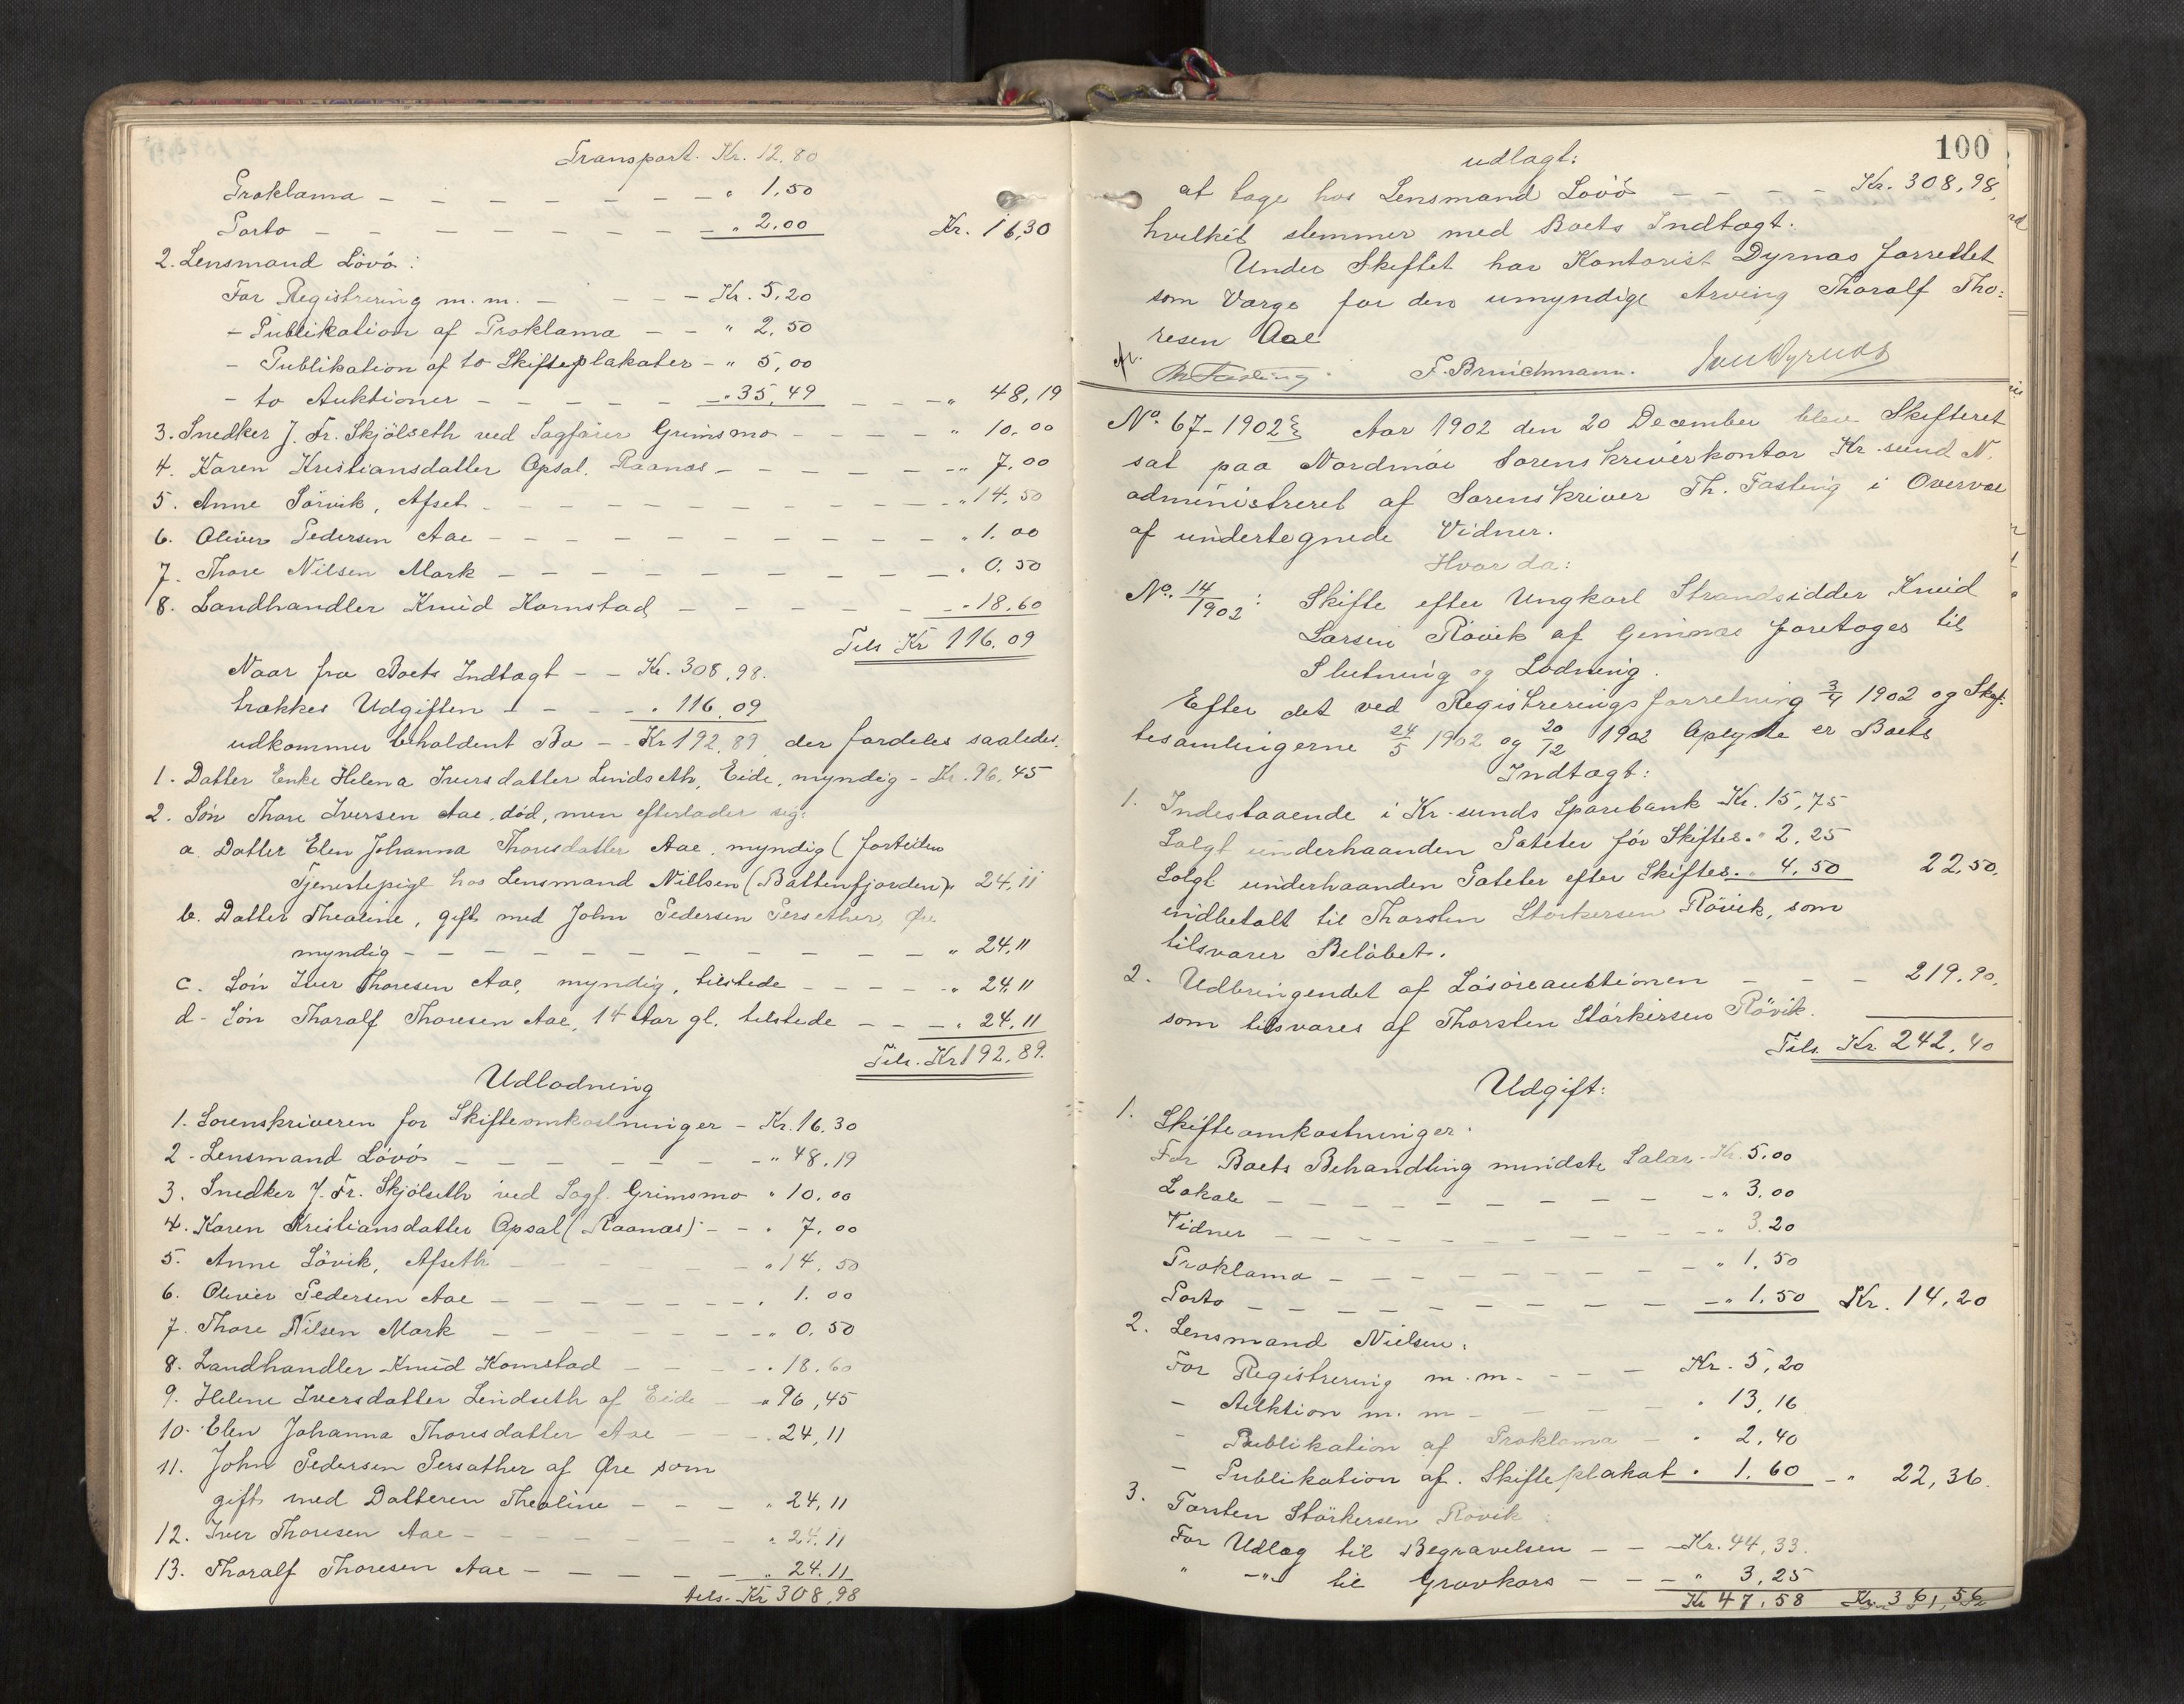 Transport. Kr. 12.80
Proklama - - - - - - - " 1,50
Porto - - - - - - - " 2.00 Kr. 16,30
2. Lensmand Lövö:
For Registrering m. m. - - - - Kr. 5,20
- Publikation af Proklama - - " 2,50
- Publikation af to Skifteplakater - " 5,00
- to Auktioner - - - - - " 35,49 - - - " 48,19
3. Snedker J. Fr. Skjölseth ved Sagfører Grimsmo - - - - " 10.00
4. Karen Kristiansdatter Opsal. Raanæs - - - - - - " 7.00
5. Anne Sörvik, Afset - - - - - - - - - " 14.50
6. Oliver Pedersen Aae - - - - - - - - - " 1.00
7. Thore Nilsen Mork - - - - - - - - - " 0.50
8. Landhandler Knud Kornstad - - - - - - " 18.60
Tils Kr 116.09
Naar fra Boets Indtægt - - Kr. 308,98.
trækkes Udgiften - - - - " 116.09
udkommer beholdent Bo - - Kr 192.89 der fordeles saaledes.
1. Datter Enke Helena Iversdatter Lindseth, Eide, myndig - Kr. 96,45
2. Søn Thore Iversen Aae, død, men efterlader sig:
a. Datter Elen Johanna Thoresdatter Aae, myndig (fortiden
Tjenestepige hos Lensmand Nillsen (Battenfjorden)) " 24,11
b. Datter Thealine, gift med John Pedersen Persæther, Øre
myndig - - - - - - - - - - " 24.11
c. Søn Iver Thoresen Aae, myndig, tilstede - - - - - " 24.11
d. Søn Thoralf Thoresen Aae, 14 Aar gl. tilstede - - - " 24.11
Tils. Kr 192,89.
Udlodning
1. Sorenskriveren for Skifteomkostninger - Kr. 16.30
2. Lensmand Lövö - - - - - - - " 48.19
3. Snedker J. Fr. Skjölseth ved Sagf. Grimsmo " 10.00
4. Karen Kristiansdatter Opsal (Raanæs) - - " 7.00
5. Anne Sövik, Afseth - - - - - - " 14.50
6. Oliver Pedersen Aae - - - - - - " 1.00
7. Thore Nilsen Mork - - - - - - - " 0.50
8. Landhandler Knud Kornstad - - - - " 18.60
9. Helene Iversdatter Lindseth af Eide - " 96,45
10. Elen Johanna Thoresdatter Aae - - - " 24,11
11. John Pedersen Persæther af Øre som
gift med Datteren Thealine - - - " 24,11
12. Iver Thoresen Aae - - - - - - - " 24.11
13. Thoralf Thoresen Aae - - - - - " 24.11
tils. Kr 308,98
100
udlagt:
at tage hos Lensmand Lövö - - - - Kr. 308,98,
hvilket stemmer med Boets Indtægt.
Under Skiftet har Kontorist Dyrnas forrettet
som Værge for den umyndige Arving Thoralf Tho:
resen Aae
Th Fasting. F. Bruichmann. Dyrnas
No. 67-1902 Aar 1902 den 20 December blev Skifteret
sat paa Nordmör Sorenskriverkontor Kr. sund N.
administreret af Sorenskriver Th. Fasting i Overvær
af undertegnede Vidner.
Hvor da:
No. 14/1902: Skifte efter Ungkarl Strandsidder Knud
Larsen Rövik af Gimnæs foretoges til
Slutning og Lodning.
Efter det ved Registreringsforretning 3/4 1902 og Skif:
tesamlingerne 24/5 1902 og 20/12 1902 Oplyste er Boets
Indtægt:
1. Indestaaende i Kr. sunds Sparebank Kr. 15,75
Solgt underhaanden Poteter før Skiftet. " 2.25
Solgt underhaanden Poteter efter Skiftet. " 4.50 22,50.
indbetalt til Thorsten Störkersen Rövik, som
tilsvarer Beløbet.
2. Udbringendet af Løsøreauktionen - - - 219.90.
som tilsvares af Thorsten Störkersen Rövik.
Tils. Kr 242,40
Udgift:
1. Skifteomkostninger.
For Boets Behandling mindste Salær - Kr. 5.00
Lokale - - - - - - - - " 3.00
Vidner - - - - - - - - " 3.20
Proklama - - - - - - - - " 1.50
Porto - - - - - - - - - " 1.50 Kr. 14,20
2. Lensmand Nielsen.
For Registrering m. m. - - - Kr. 5,20
- Auktion m. m - - - - " 13,16
- Publikation af Proklama - " 2,40
- Publikation af Skifteplakat " 1.60 - " 22,36.
3. Torsten Störkersen Rövik:
For Udlæg til Begravelsen - - - Kr. 44,33.
" - " - til Gravkors - - - " 3,25
Kr 47.58 Kr. 361,56